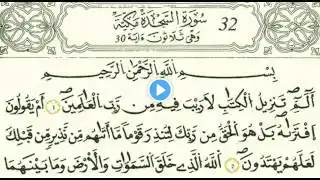 32
سُورَةُ السَّجْدَةِ مَكِّيَّةٌ
وَهِيَ ثَلَاثُونَ ءَايَةً 30
بِسْمِ اللَّهِ الرَّحْمَٰنِ الرَّحِيمِ
الٓمٓ تَنزِيلُ الْكِتَابِ لَا رَيْبَ فِيهِ مِن رَّبِّ الْعَالَمِينَ أَمْ يَقُولُونَ
افْتَرَاهُ بَلْ هُوَ الْحَقُّ مِن رَّبِّكَ لِتُنذِرَ قَوْمًا مَّا أَتَاهُم مِّن نَّذِيرٍ مِّن قَبْلِكَ
لَعَلَّهُمْ يَهْتَدُونَ اللَّهُ الَّذِي خَلَقَ السَّمَاوَاتِ وَالْأَرْضَ وَمَا بَيْنَهُمَا